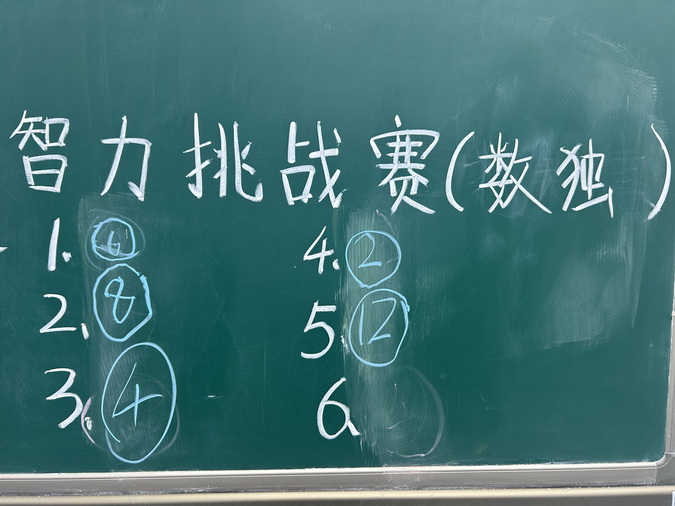 智力挑战赛(数独)
1. 4. ②
2. ⑧ 5. ⑫
3. ④ 6.